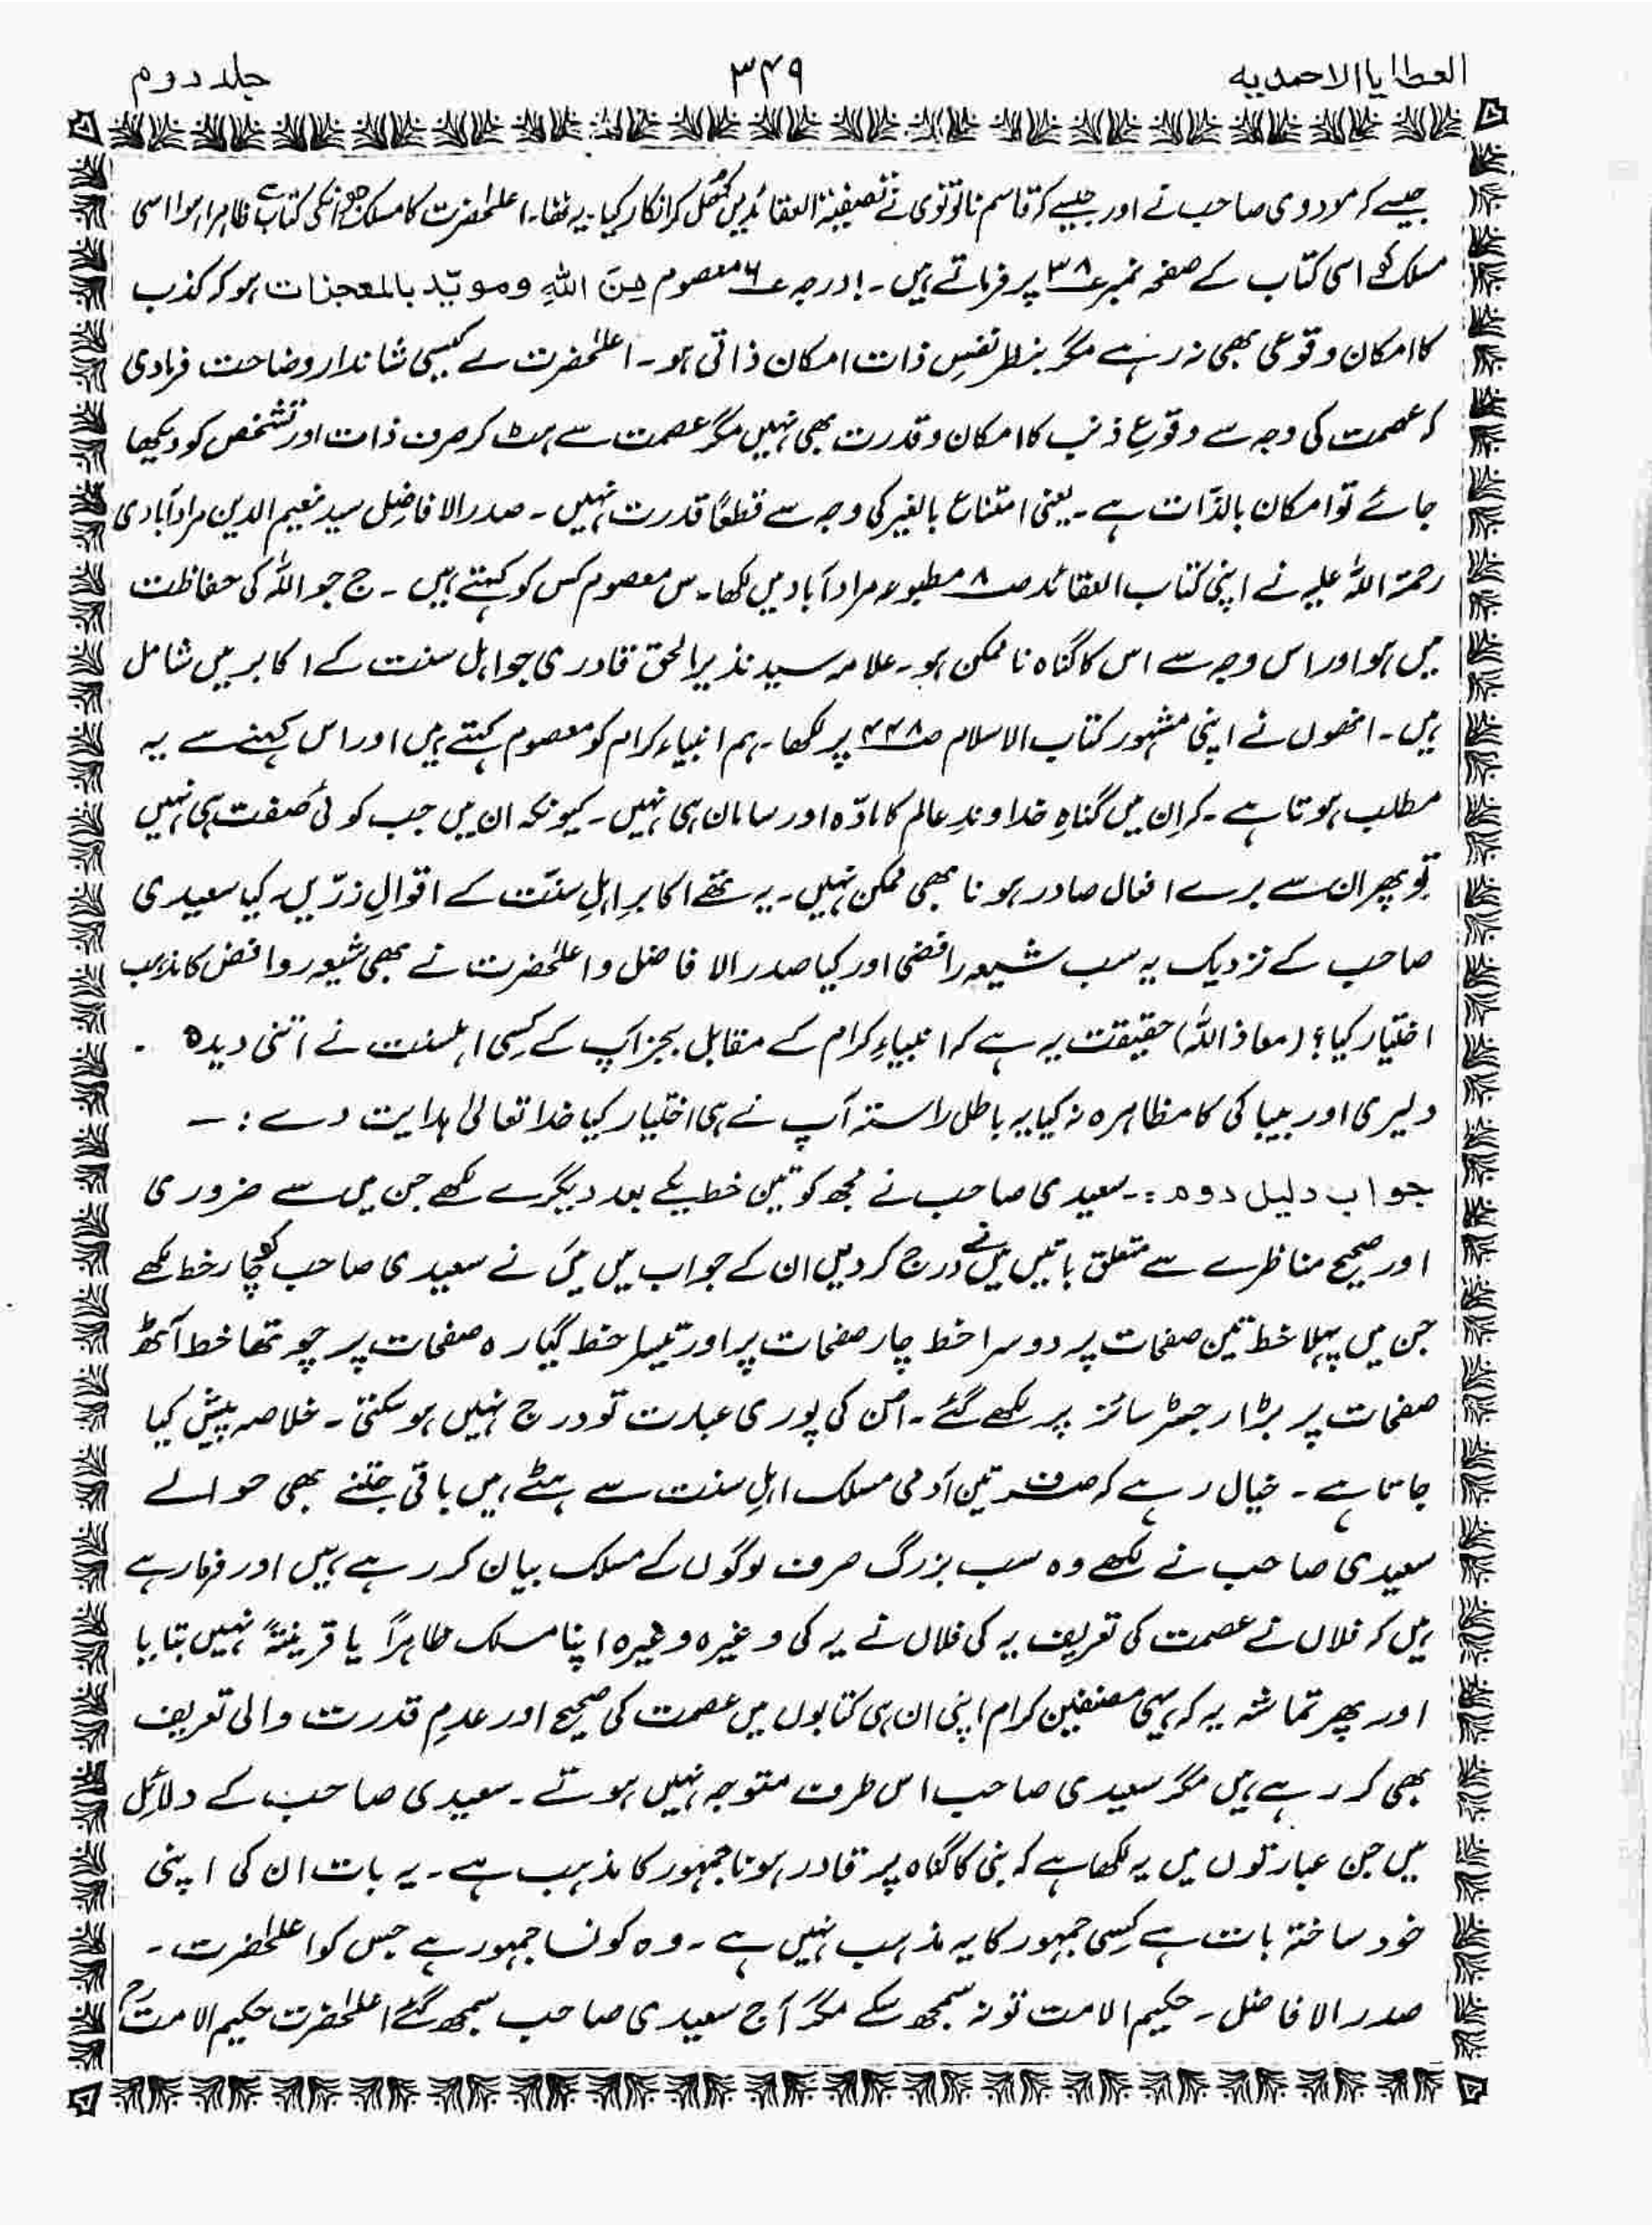 العطایا الاحمدیہ ۳۴۹ جلد دوم
جیسے کہ مودودی صاحب نے اور جیسے کہ قاسم نانوتوی نے تصفیۃ العقائد میں کھل کر انکار کیا۔ یہ تھا۔ اعلحضرت کا مسلک جو انکی کتاب سے ظاہر ہوا اسی
مسلک کو اسی کتاب کے صفحہ نمبر ۳۸ پر فرماتے ہیں۔ درجہ ۶ معصوم مِنَ اللهِ وموٴیّد بالمعجزات ہو کہ کذب
کا امکان وقوعی بھی نہ رہے مگر بنظر نفسِ ذات امکان ذاتی ہو۔ اعلحضرت نے کیسی شاندار وضاحت فرمادی
کہ عصمت کی وجہ سے وقوعِ ذنب کا امکان و قدرت بھی نہیں مگر عصمت سے ہٹ کر صرف ذات اور تشخص کو دیکھا
جائے تو امکان بالذّات ہے۔ یعنی امتناع بالغیر کی وجہ سے قطعًا قدرت نہیں۔ صدر الافاضِل سید نعیم الدین مرادآبادی
رحمۃ اللہ علیہ نے اپنی کتاب العقائد صـ۸ مطبوعہ مراد آباد میں لکھا۔ س معصوم کس کو کہتے ہیں۔ ج جو اللہ کی حفاظت
میں ہو اور اس وجہ سے اس کا گناہ ناممکن ہو۔ علامہ سید نذیر الحق قادری جو اہل سنت کے اکابر میں شامل
ہیں۔ انھوں نے اپنی مشہور کتاب الاسلام صـ۴۴۸ پر لکھا۔ ہم انبیاء کرام کو معصوم کہتے ہیں اور اس کہنے سے یہ
مطلب ہوتا ہے۔ کہ اِن میں گناہِ خداوندِ عالم کا مادّہ اور سامان ہی نہیں۔ کیونکہ ان میں جب کوئی صفت ہی نہیں
تو پھر ان سے برے افعال صادر ہونا بھی ممکن نہیں۔ یہ تھے اکابرِ اہلِ سنّت کے اقوالِ زرّیں۔ کیا سعیدی
صاحب کے نزدیک یہ سب شیعہ رافضی اور کیا صدر الافاضل و اعلحضرت نے بھی شیعہ روافض کا مذہب
اختیار کیا؟ (معاذ اللہ) حقیقت یہ ہے کہ انبیاءِ کرام کے مقابل بجز آپ کے کِسی اہلسنت نے اتنی دیدہ ۔
دلیری اور بیباکی کا مظاہرہ نہ کیا یہ باطل راستہ آپ نے ہی اختیار کیا خدا تعالیٰ ہدایت دے :—
جواب دلیل دوم :۔ سعیدی صاحب نے مجھ کو تین خط یکے بعد دیگرے لکھے جن میں سے ضروری
اور صحیح مناظرے سے متعلق باتیں میں نے درج کر دیں ان کے جواب میں مَیں نے سعیدی صاحب کو چار خط لکھے
جن میں پہلا خط تین صفحات پر دوسرا خط چار صفحات پر اور تیسرا خط گیارہ صفحات پر چوتھا خط آٹھ
صفحات پر بڑا رجسٹر سائز پر لکھے گئے۔ اُن کی پوری عبارت تو درج نہیں ہو سکتی۔ خلاصہ پیش کیا
جاتا ہے۔ خیال رہے کہ صرف تین آدمی مسلک اہلِ سنت سے ہٹے ہیں باقی جتنے بھی حوالے
سعیدی صاحب نے لکھے وہ سب بزرگ صرف لوگوں کے مسلک بیان کر رہے ہیں اور فرما رہے
ہیں کہ فلاں نے عصمت کی تعریف یہ کی فلاں نے یہ کی وغیرہ وغیرہ اپنا مسلک ظاہراً یا قرینتہً نہیں بتایا
اور پھر تماشہ یہ کہ یہی مصنفین کرام اپنی ان ہی کتابوں میں عصمت کی صحیح اور عدمِ قدرت والی تعریف
بھی کر رہے ہیں مگر سعیدی صاحب اس طرف متوجہ نہیں ہوتے۔ سعیدی صاحب کے دلائل
میں جن عبارتوں میں یہ لکھا ہے کہ نبی کا گناہ پر قادر ہونا جمہور کا مذہب ہے۔ یہ بات ان کی اپنی
خود ساختہ بات ہے کِسی جمہور کا یہ مذہب نہیں ہے۔ وہ کونسا جمہور ہے جس کو اعلحضرت ۔
صدر الافاضل۔ حکیم الامت تو نہ سمجھ سکے مگر آج سعیدی صاحب سمجھ گئے اعلحضرت حکیم الامتؒ